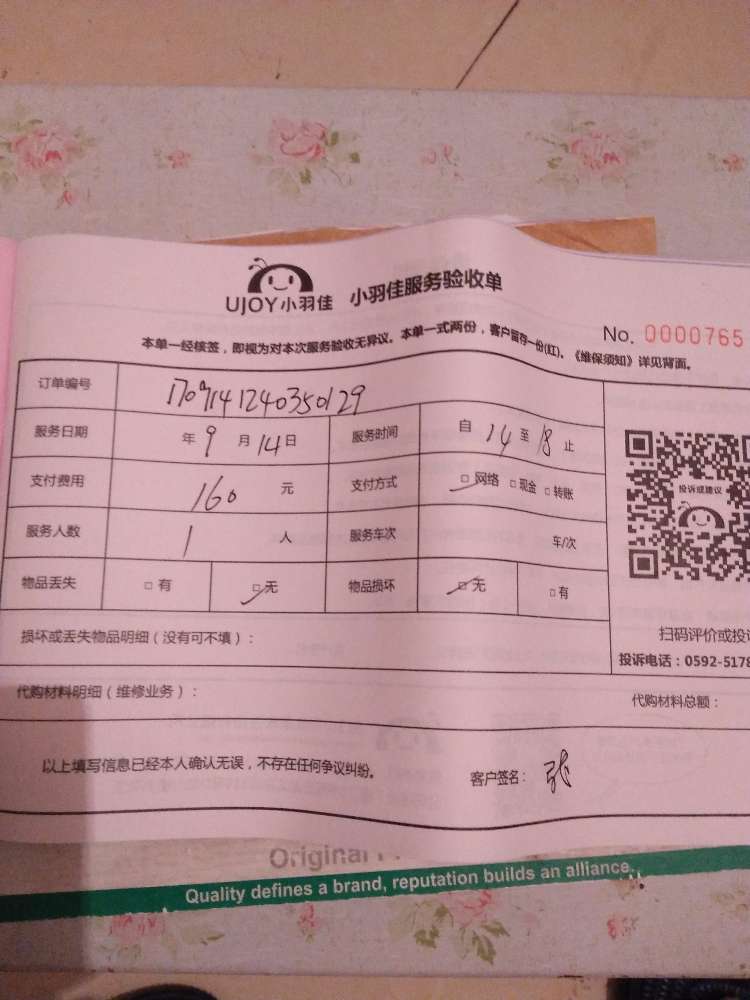 UJOY小羽佳 小羽佳服务验收单
No. 0000765
本单一经核签，即视为对本次服务验收无异议。本单一式两份，客户留存一份(红)。《维保须知》详见背面。
订单编号 1709141240350129
服务日期 年 9 月 14 日 服务时间 自 14 至 18 止
支付费用 160 元 支付方式 □网络 □现金 □转账
服务人数 1 人 服务车次 车/次
物品丢失 □有 □无 物品损坏 □无 □有
投诉或建议
扫码评价或投
投诉电话：0592-5178
损坏或丢失物品明细（没有可不填）：
代购材料明细（维修业务）： 代购材料总额：
以上填写信息已经本人确认无误，不存在任何争议纠纷。 客户签名： 张
Original
Quality defines a brand, reputation builds an alliance.